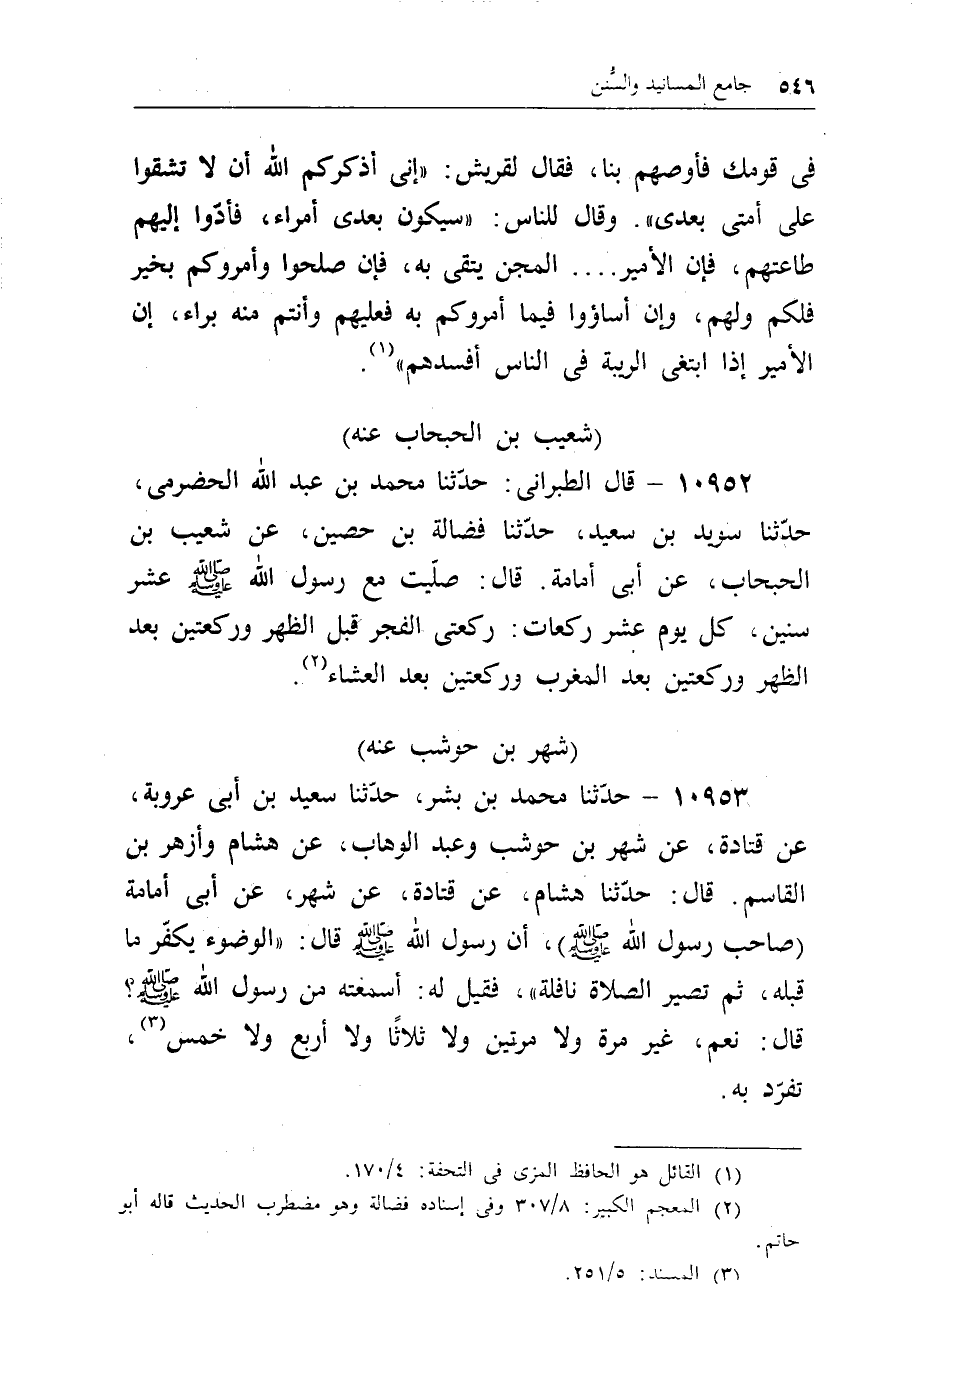 ٥٤٦ جامع المسانيد والسُّنن
فى قومك فأوصهم بنا، فقال لقريش: «إنى أذكركم الله أن لا تشقوا
على أمتى بعدى». وقال للناس: «سيكون بعدى أمراء، فأدّوا إليهم
طاعتهم، فإن الأمير.... المجن يتقى به، فإن صلحوا وأمروكم بخير
فلكم ولهم، وإن أساؤوا فيما أمروكم به فعليهم وأنتم منه براء، إن
الأمير إذا ابتغى الريبة فى الناس أفسدهم»(١).
(شعيب بن الحبحاب عنه)
١٠٩٥٢ - قال الطبرانى: حدّثنا محمد بن عبد الله الحضرمى،
حدّثنا سويد بن سعيد، حدّثنا فضالة بن حصين، عن شعيب بن
الحبحاب، عن أبى أمامة. قال: صلّيت مع رسول الله ﷺ عشر
سنين، كل يوم عشر ركعات: ركعتى الفجر قبل الظهر وركعتين بعد
الظهر وركعتين بعد المغرب وركعتين بعد العشاء(٢).
(شهر بن حوشب عنه)
١٠٩٥٣ - حدّثنا محمد بن بشر، حدّثنا سعيد بن أبى عروبة،
عن قتادة، عن شهر بن حوشب وعبد الوهاب، عن هشام وأزهر بن
القاسم. قال: حدّثنا هشام، عن قتادة، عن شهر، عن أبى أمامة
(صاحب رسول الله ﷺ)، أن رسول الله ﷺ قال: «الوضوء يكفّر ما
قبله، ثم تصير الصلاة نافلة»، فقيل له: أسمعته من رسول الله ﷺ؟
قال: نعم، غير مرة ولا مرتين ولا ثلاثًا ولا أربع ولا خمس(٣)،
تفرّد به.
(١) القائل هو الحافظ المزى فى التحفة: ١٧٠/٤.
(٢) المعجم الكبير: ٣٠٧/٨ وفى إسناده فضالة وهو مضطرب الحديث قاله أبو
حاتم.
(٣) المسند: ٢٥١/٥.